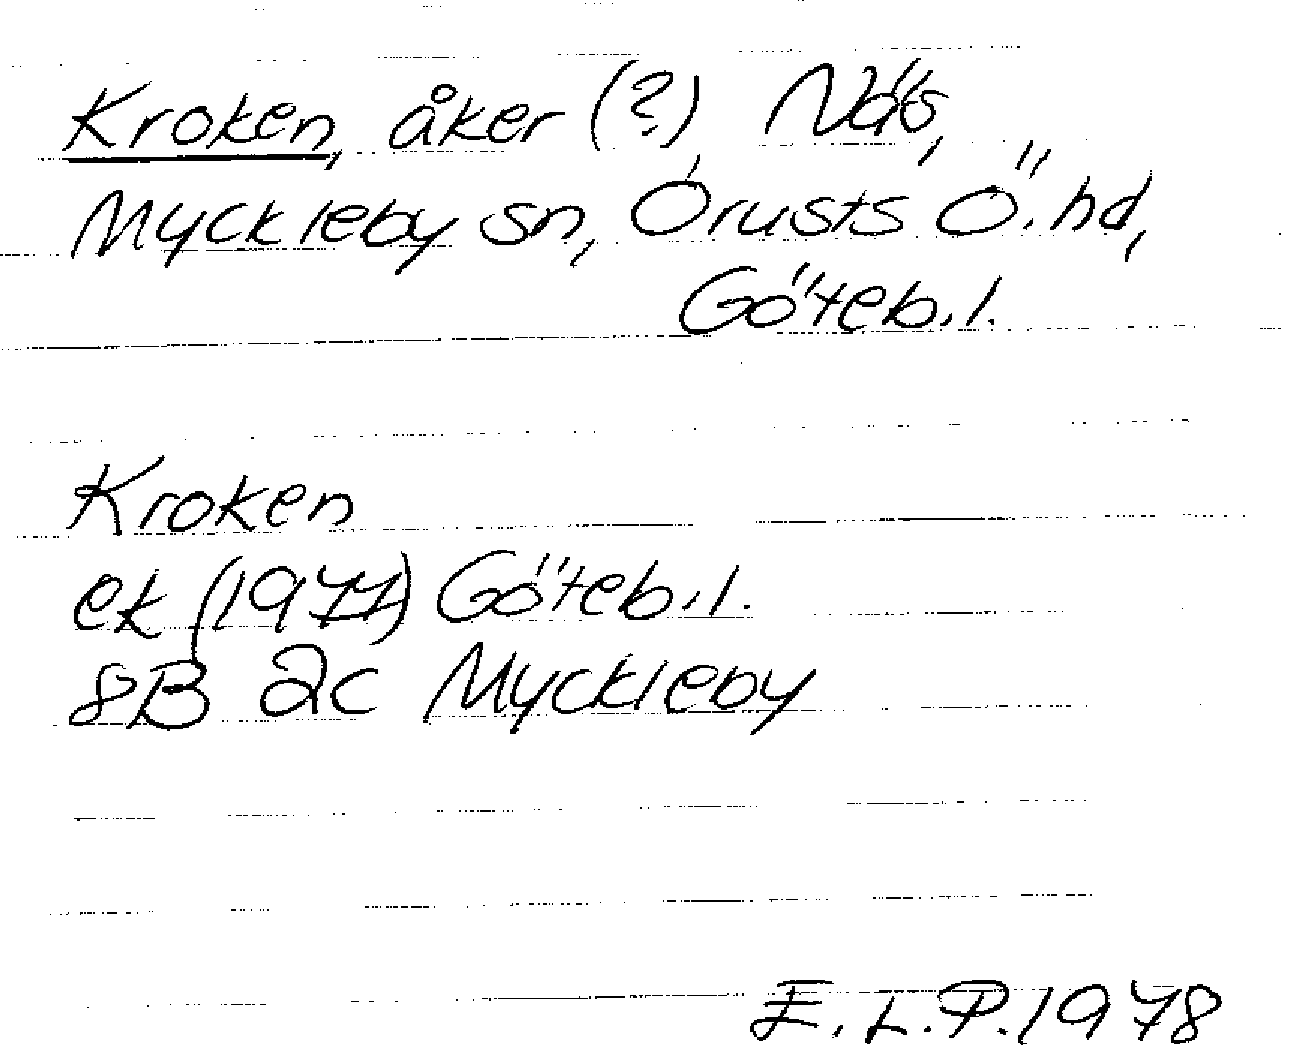 Kroken, åker (?) Näs,
Myckleby sn, Orusts Ö. hd,
Göteb. l.
Kroken
ek (1977) Göteb. l.
8B 2c Myckleby
E. L. P. 1978